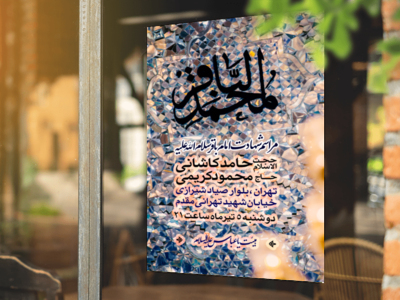 محمد الباقر
مراسم شهادت امام باقر سلام الله علیه
حجت الاسلام حامد کاشانی
حاج محمود کریمی
تهران، بلوار صیاد شیرازی
خیابان شهید تهرانی مقدم
دوشنبه ۵ تیرماه ساعت ۲۱
هیئت یا عباس علیه السلام